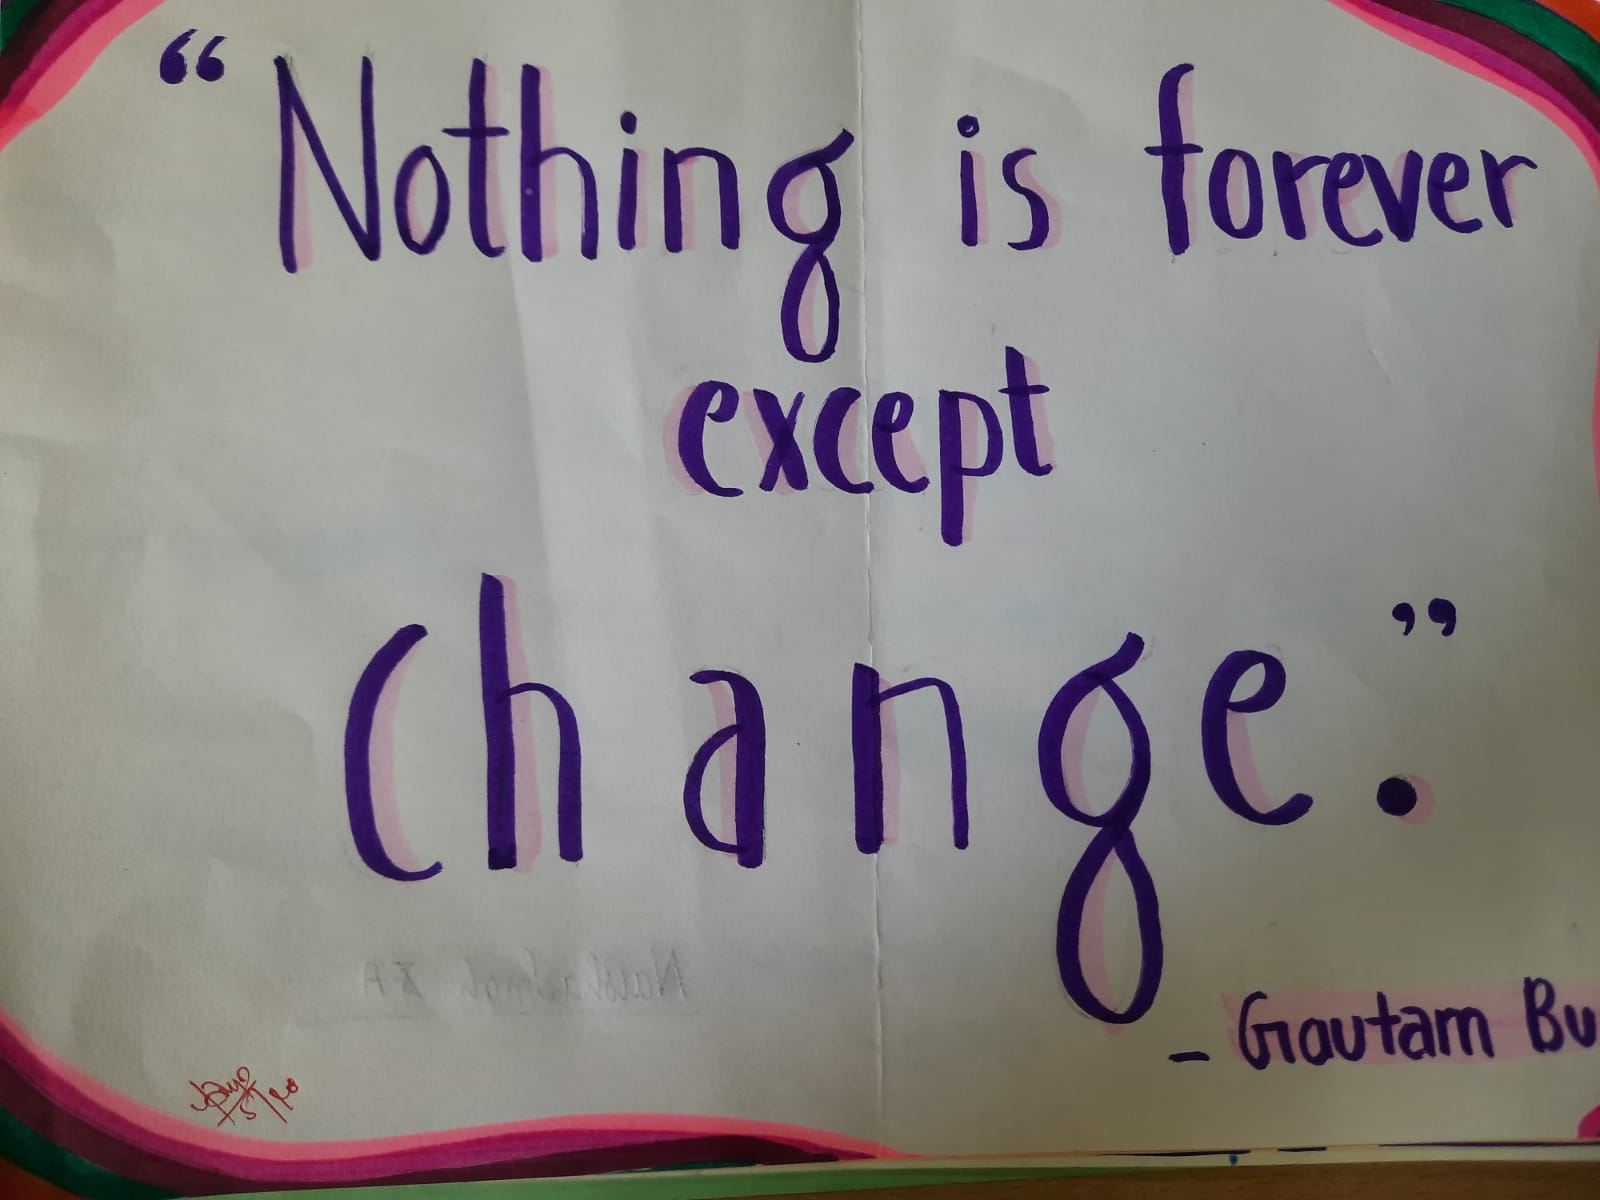 “Nothing is forever
except
change.”
- Gautam Bu